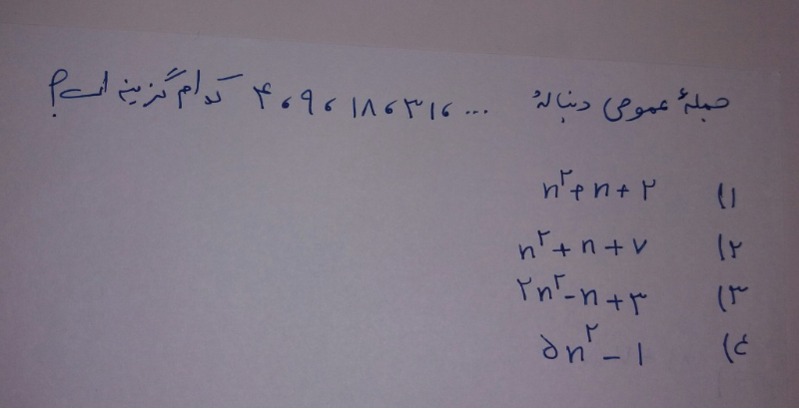 جملهٔ عمومی دنبالهٔ ۴، ۹، ۱۸، ۳۱، ... کدام گزینه است؟
۱) n²+n+۲
۲) n²+n+۷
۳) ۲n²-n+۳
۴) ۵n²-۱